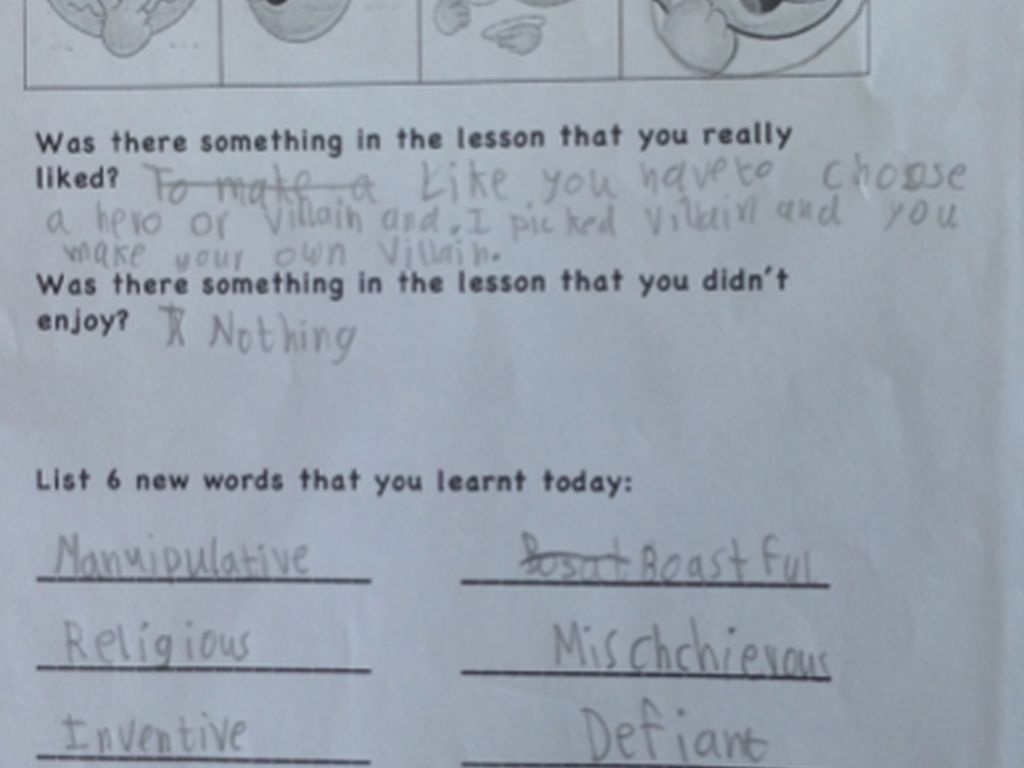 Was there something in the lesson that you really
liked? To make a Like you have to choose
a hero or villain and. I picked villain and you
make your own villain.
Was there something in the lesson that you didn't
enjoy? Nothing
List 6 new words that you learnt today:
Manuipulative Bosat Boastful
Religious Mischchievous
Inventive Defiant